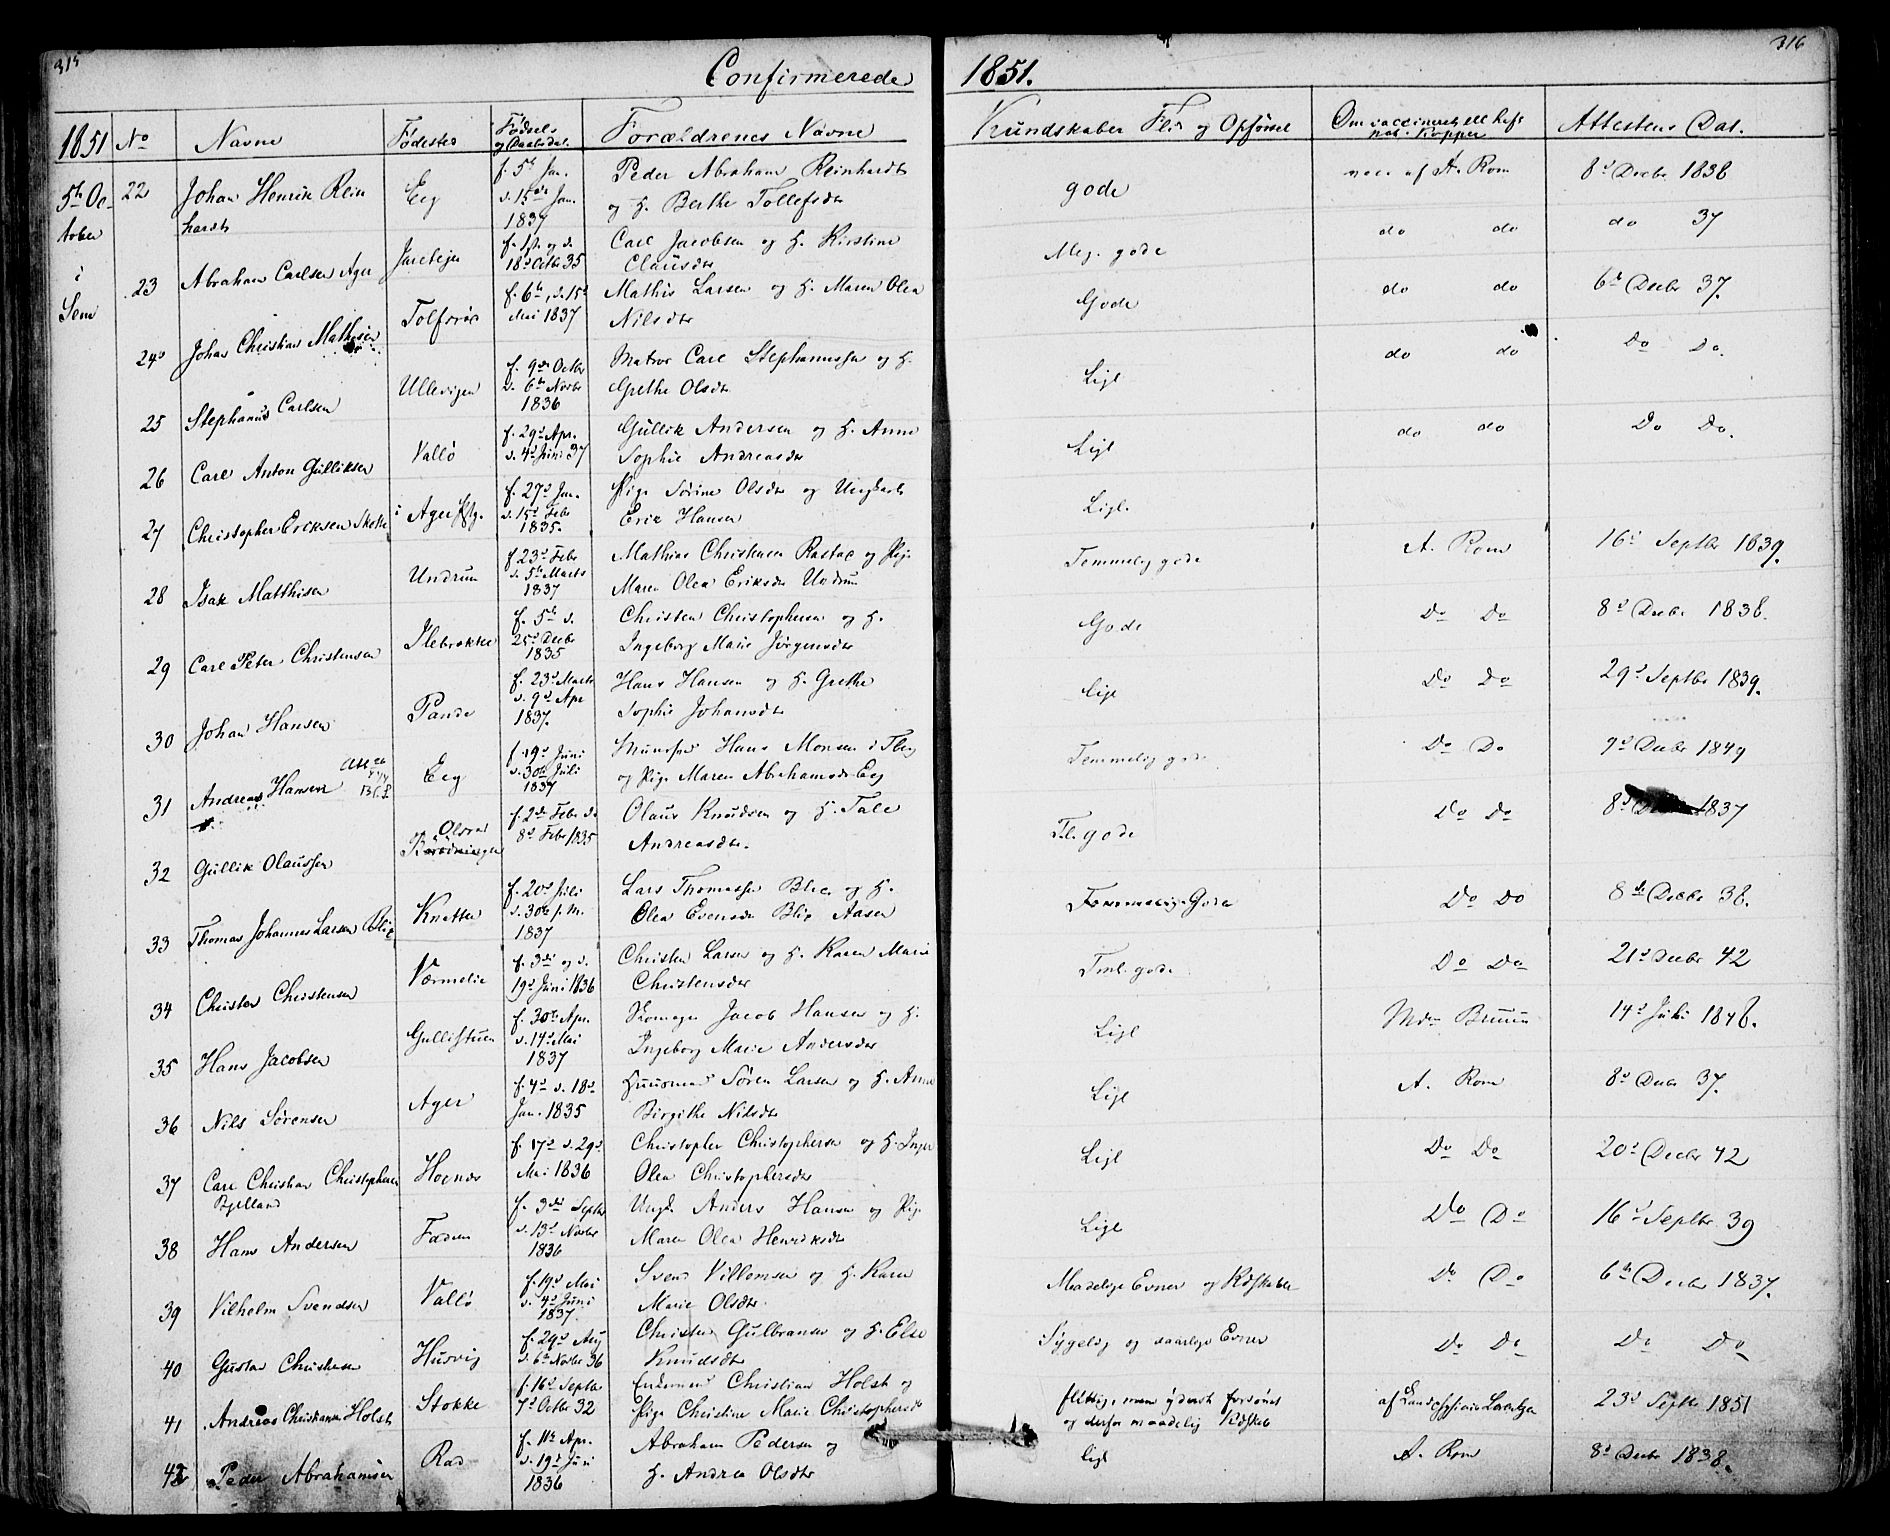 315
Confirmerede
1851.
316
1851 No Navne Fødested Fødsels og Daabsdat. Forældrenes Navne Kundskaber Flid og Opførsel Om vaccineret ell. haft nat. Kopper Attestens Dat.
5te October i Sem
22 Johan Henrik Reinhardt Eeg f. 5te Jan. d. 15de Jan. 1837 Peder Abraham Reinhardt og H. Berthe Tollefsdtr gode vacc af A. Rom 8d Decbr 1838
23 Abraham Carlsen Ager Jarebejer f. 1ste og d. 18d Octbr 35 Carl Jacobsen og H. Kirstine Clausdtr Meg. gode do do do 37
24 Johan Christian Mathisen Tolfsrød f. 6te, d. 15d Mai 1837 Mathis Larsen og H. Maren Olea Nilsdtr Gode do do 6te Decbr 37.
25 Stephanus Carlsen Ullevigen f. 9de Octbr d. 6te Novbr 1836 Matros Carl Stephanussen og H. Grethe Olsdtr Ligl do do Do Do.
26 Carl Anton Gulliksen Vallø f. 29d Apr. d. 4d Juni 37 Gullik Andersen og H. Anne Sophie Andreasdtr Ligl do do Do Do.
27 Christopher Ericksen Skotte i Ager Pstg. f. 27d Jan. d. 15d Febr 1835. Pige Sørine Olsdtr og Ungkarl Eric Hansen Ligl.
28 Isak Matthisen Undrum f. 23d Febr d. 5te Marts 1837 Mathias Christensen Rastad og Pige Maren Olea Eriksdtr Undrum Temmelig gode A. Rom 16d Septbr 1839.
29 Carl Peter Christensen Ilebrække f. 5te d. 25d Decbr 1835 Christen Christophersen og H. Ingeborg Marie Jørgensdtr Gode Do Do 8d Decbr 1838.
30 Johan Hansen Pande f. 23d Marts d. 9d Apr 1837. Hans Hansen og H. Grethe Sophie Johansdtr Ligl Do Do 29d Septbr 1839.
31 Andreas Hansen Eeg f. 19d Juni d. 30te Juli 1837 Hans Monsen i og Pige Maren Abrahamsdtr Eeg Temmelig gode Do Do 9d Decbr 1849
32 Gullik Olaussen f. 2de Febr d. 8d Febr 1835 Olaus Knudsen og H. Tale Andreasdtr. Tl. gode Do Do 8d 1837
33 Thomas Johannes Larsen Blix Knatten f. 20d Juli d. 30te s. M. 1837 Lars Thomassen Blix og H. Olea Evensdtr Blix Aasen Temmelig Gode Do Do 8de Decbr 38.
34 Christen Christensen Værmelie f. 3die og d. 19d Juni 1836 Christen Larsen og H. Karen Marie Christensdtr Tml. gode Do Do 21d Decbr 42
35 Hans Jacobsen Gullistuen f. 30te Apr. d. 14d Mai 1837 Skomager Jacob Hansen og H. Ingeborg Marie Andersdtr Ligl Mdm Bruun 14d Juli 1848.
36 Nils Sørensen Ager f. 4d d. 18d Jan. 1835 Huusmand Søren Larsen og H. Anne Birgithe Nilsdtr Ligl A. Rom 8d Decbr 37.
37 Carl Christian Christophersen Bjelland Hognæs f. 17d d. 29d Mai 1836 Christopher Christophersen og H. Inger Olea Christophersdtr Ligl Do Do 20d Decbr 42
38 Hans Andersen Fadum f. 3die Septbr d. 13d Novbr 1836 Ungk. Anders Hansen og Pige Maren Olea Henriksdtr Ligl Do Do 16d Septbr 39
39 Vilhelm Svendsen Vallø f. 19d Mai d. 4d Juni 1837. Svend Villomsen og H. Karen Marie Olsdtr. Maadelige Evner og Kdskaber Do Do 6te Decbr 1837.
40 Gustav Christensen Husvig f. 29d Aug d. 6te Novbr 36 Christen Gulbransen og H. Else Knudsdtr Sygelig og saarlige Evner Do Do Do Do
41 Andreas Christiansen Holst Stokke f. 16d Septbr 7d Octbr 32 Christian Holst og Pige Christine Marie Christophersdtr flittig, men yderst forsømt og derfor maadelig Kdskab af Lorentzen 23d Septbr 1851
42 Peder Abrahamsen Rad f. 11te Apr. d. 19d Juni 1836 Abraham Pedersen og H. Andrea Olsdtr ligl A. Rom 8d Decbr 1838.